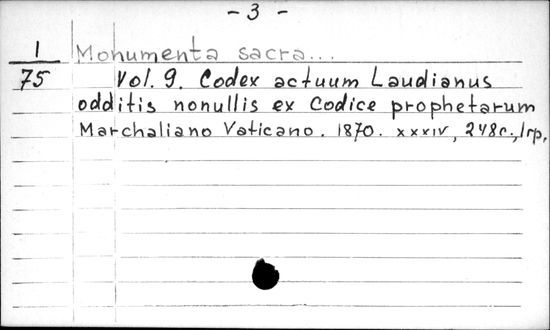 - 3 -
1 Monumenta sacra...
75 Vol. 9. Codex actuum Laudianus
odditis nonullis ex Codice prophetarum
Marchaliano Vaticano. 1870. XXXIV, 248c., 1rp.